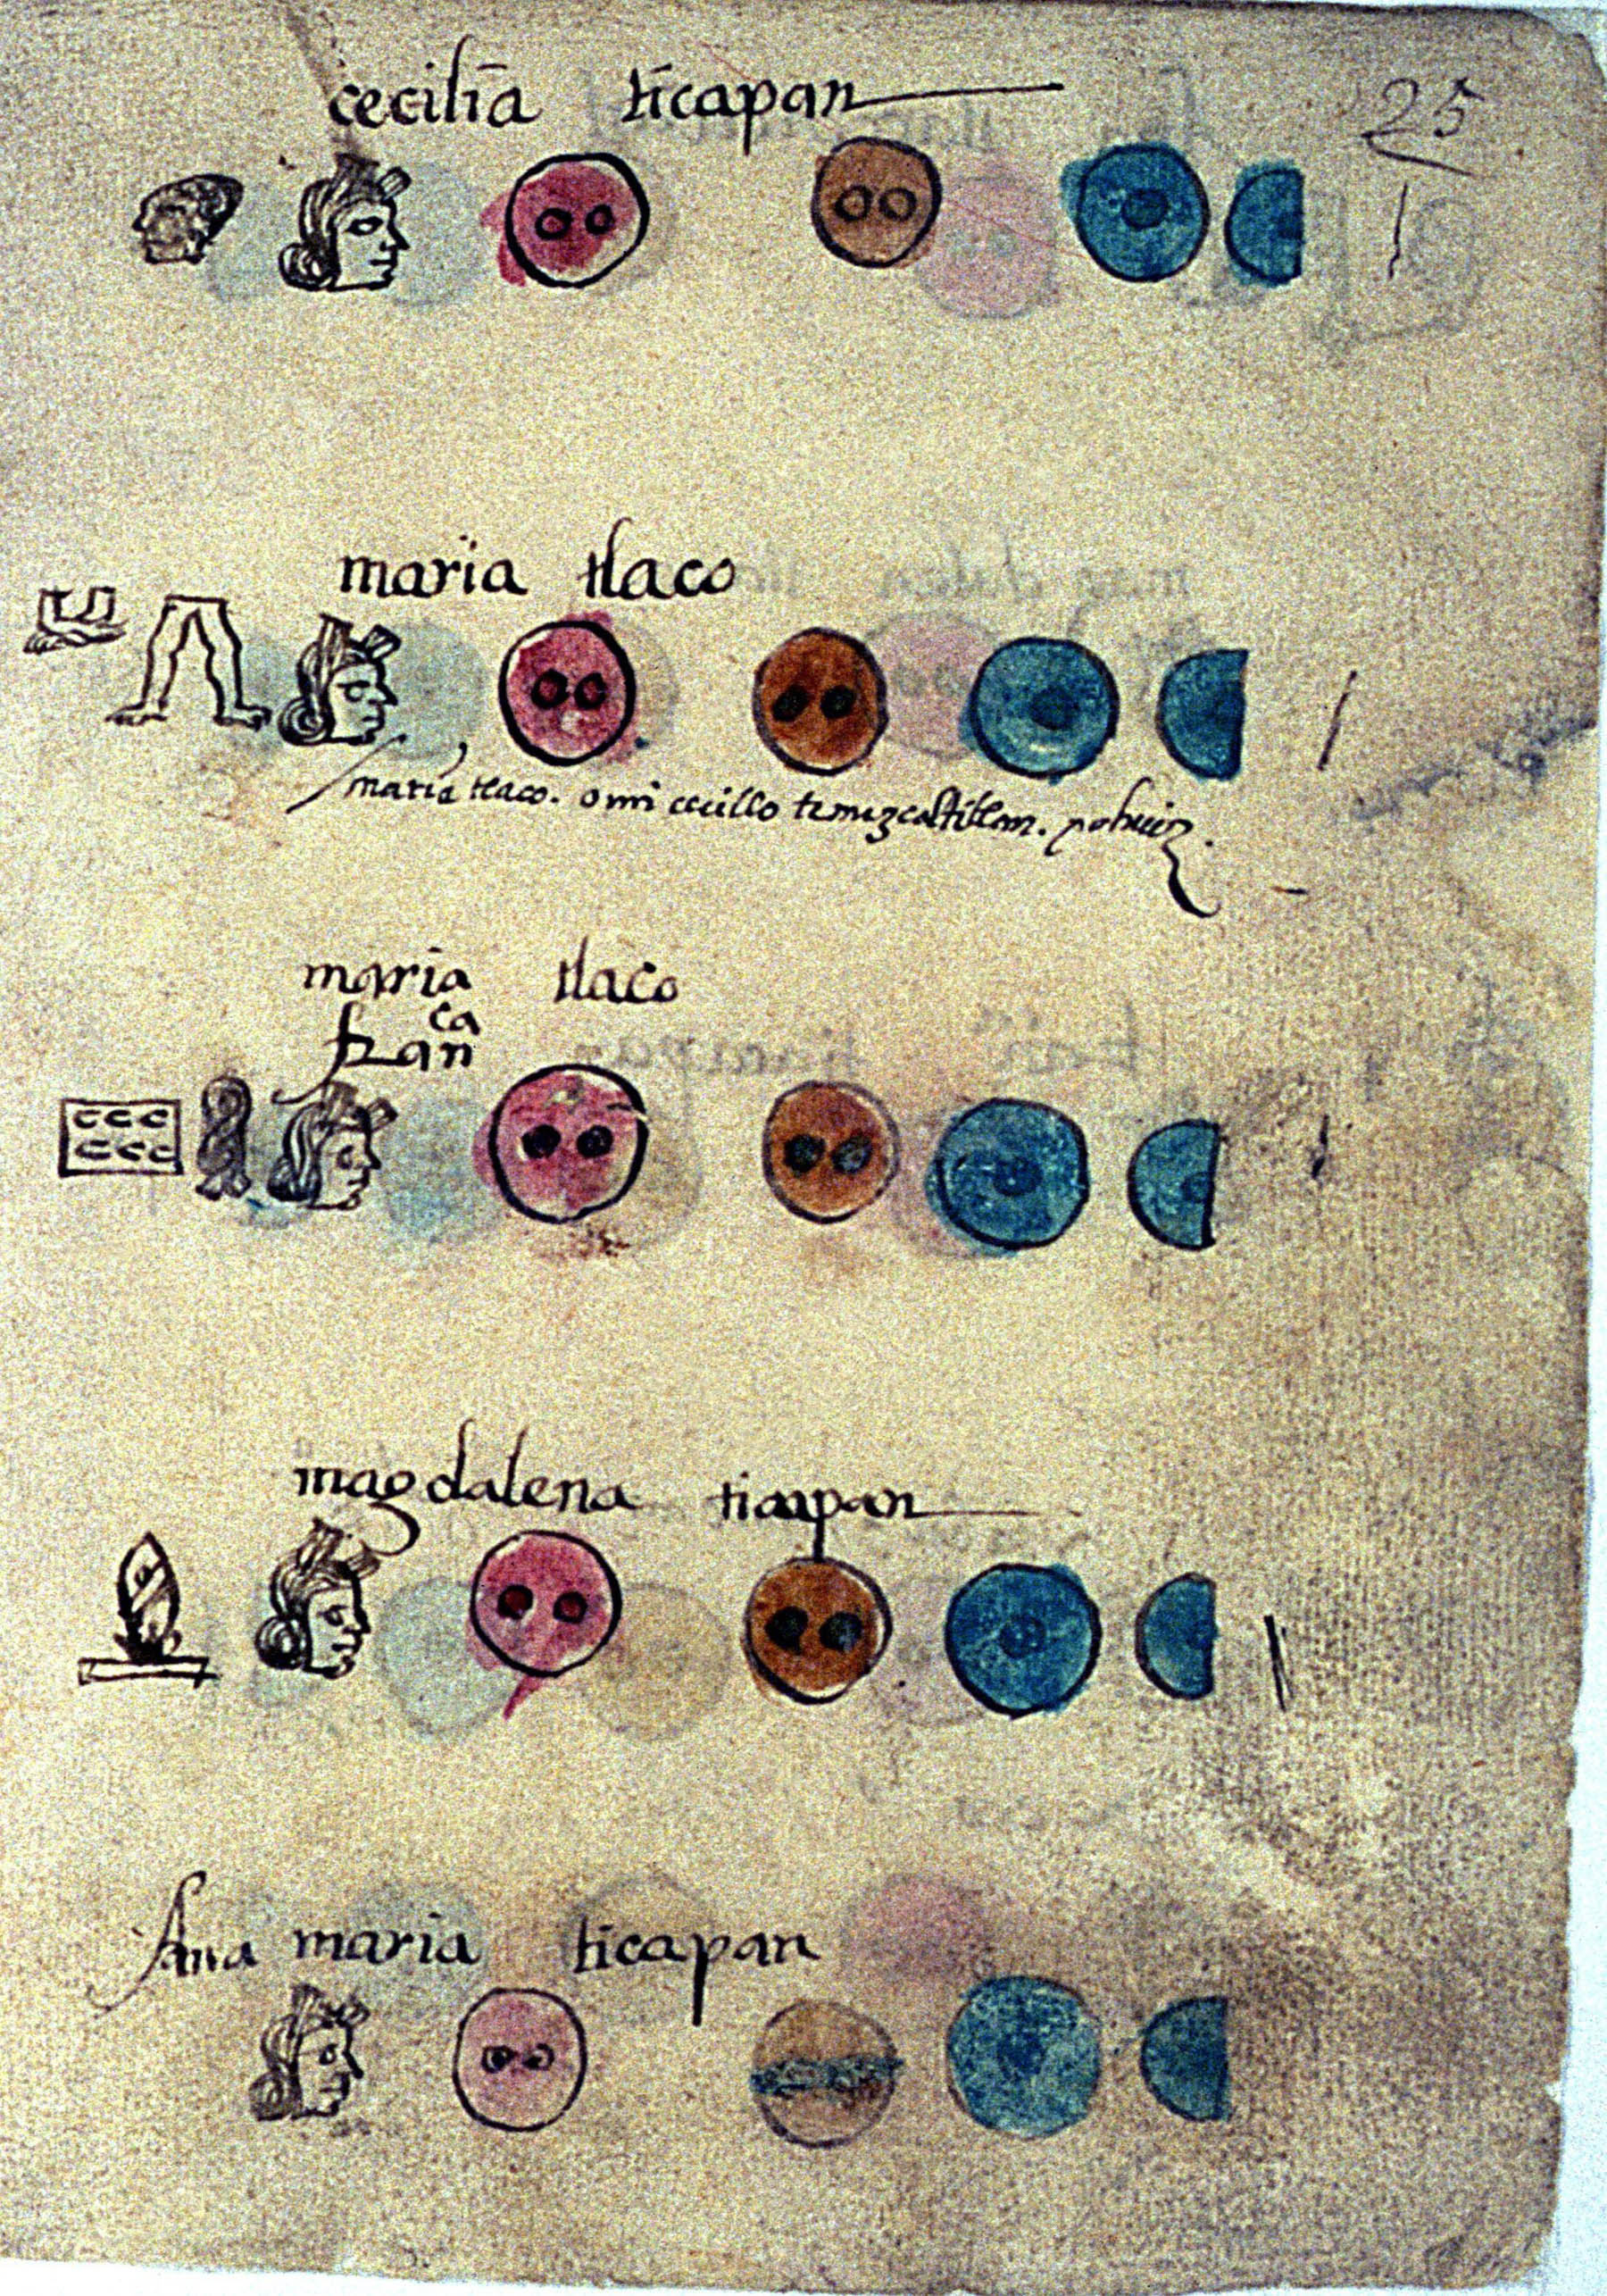 cecilīa ticapan
25
maria tlaco
maria tlaco. omicuillo temezcaltitlan. pohuiz.
maria tlaco
fran^ca
magdalena ticapan
Ana maria ticapan